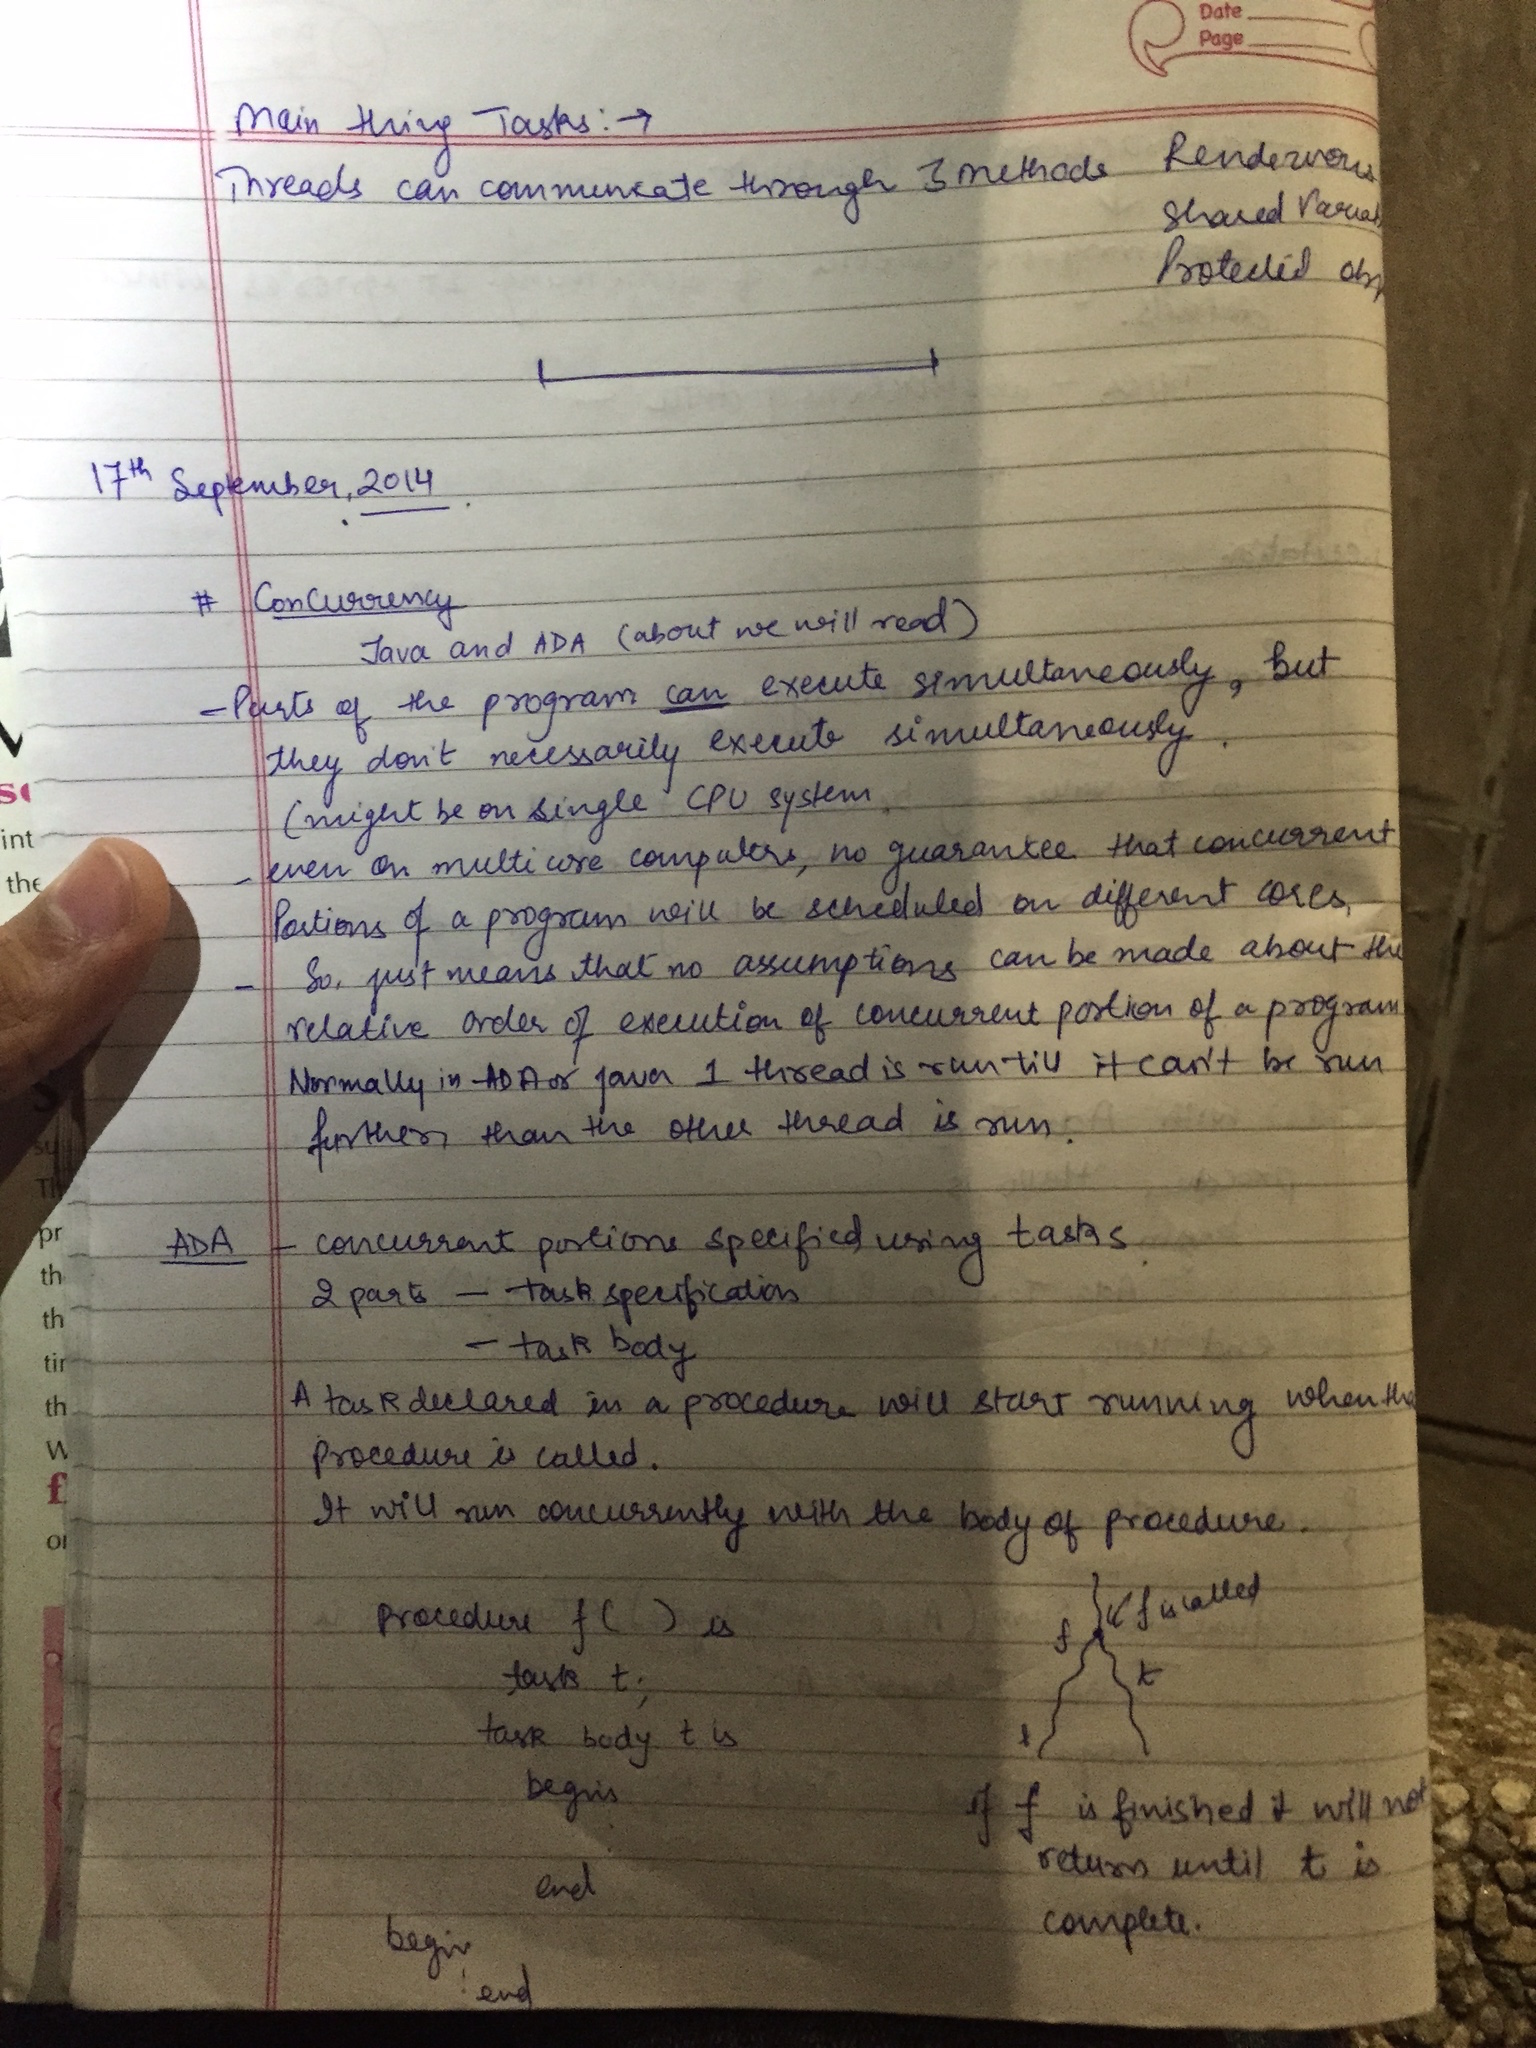 Date
Page
Main thing Tasks:→
Threads can communicate through 3 methods Rendezvous
Shared
Protected
17th September, 2014
# Concurrency
Java and ADA (about we will read)
- Parts of the program can execute simultaneously, but
they don't necessarily execute simultaneously.
(might be on single CPU system
- even on multicore computers, no guarantee that concurrent
Portions of a program will be scheduled on different cores,
- So, just means that no assumptions can be made about the
relative order of execution of concurrent portion of a program
Normally in ADA or java 1 thread is run till it can't be run
further, than the other thread is run.
ADA - concurrent portions specified using tasks
2 parts - task specification
- task body
A task declared in a procedure will start running when the
procedure is called.
It will run concurrently with the body of procedure.
f is called
procedure f( ) is
f
task t;
t
task body t is
begin
if f is finished it will not
return until t is
end
complete.
begin
end
int
the
pr
th
th
tir
th
W
f